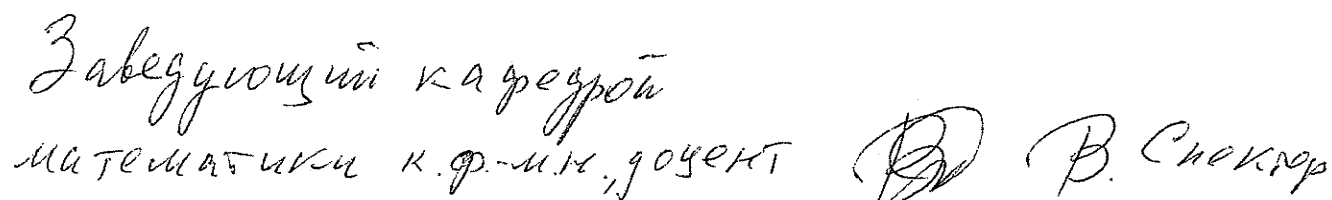 Заведующий кафедрой
математики к.ф.-м.н., доцент В. Спектор